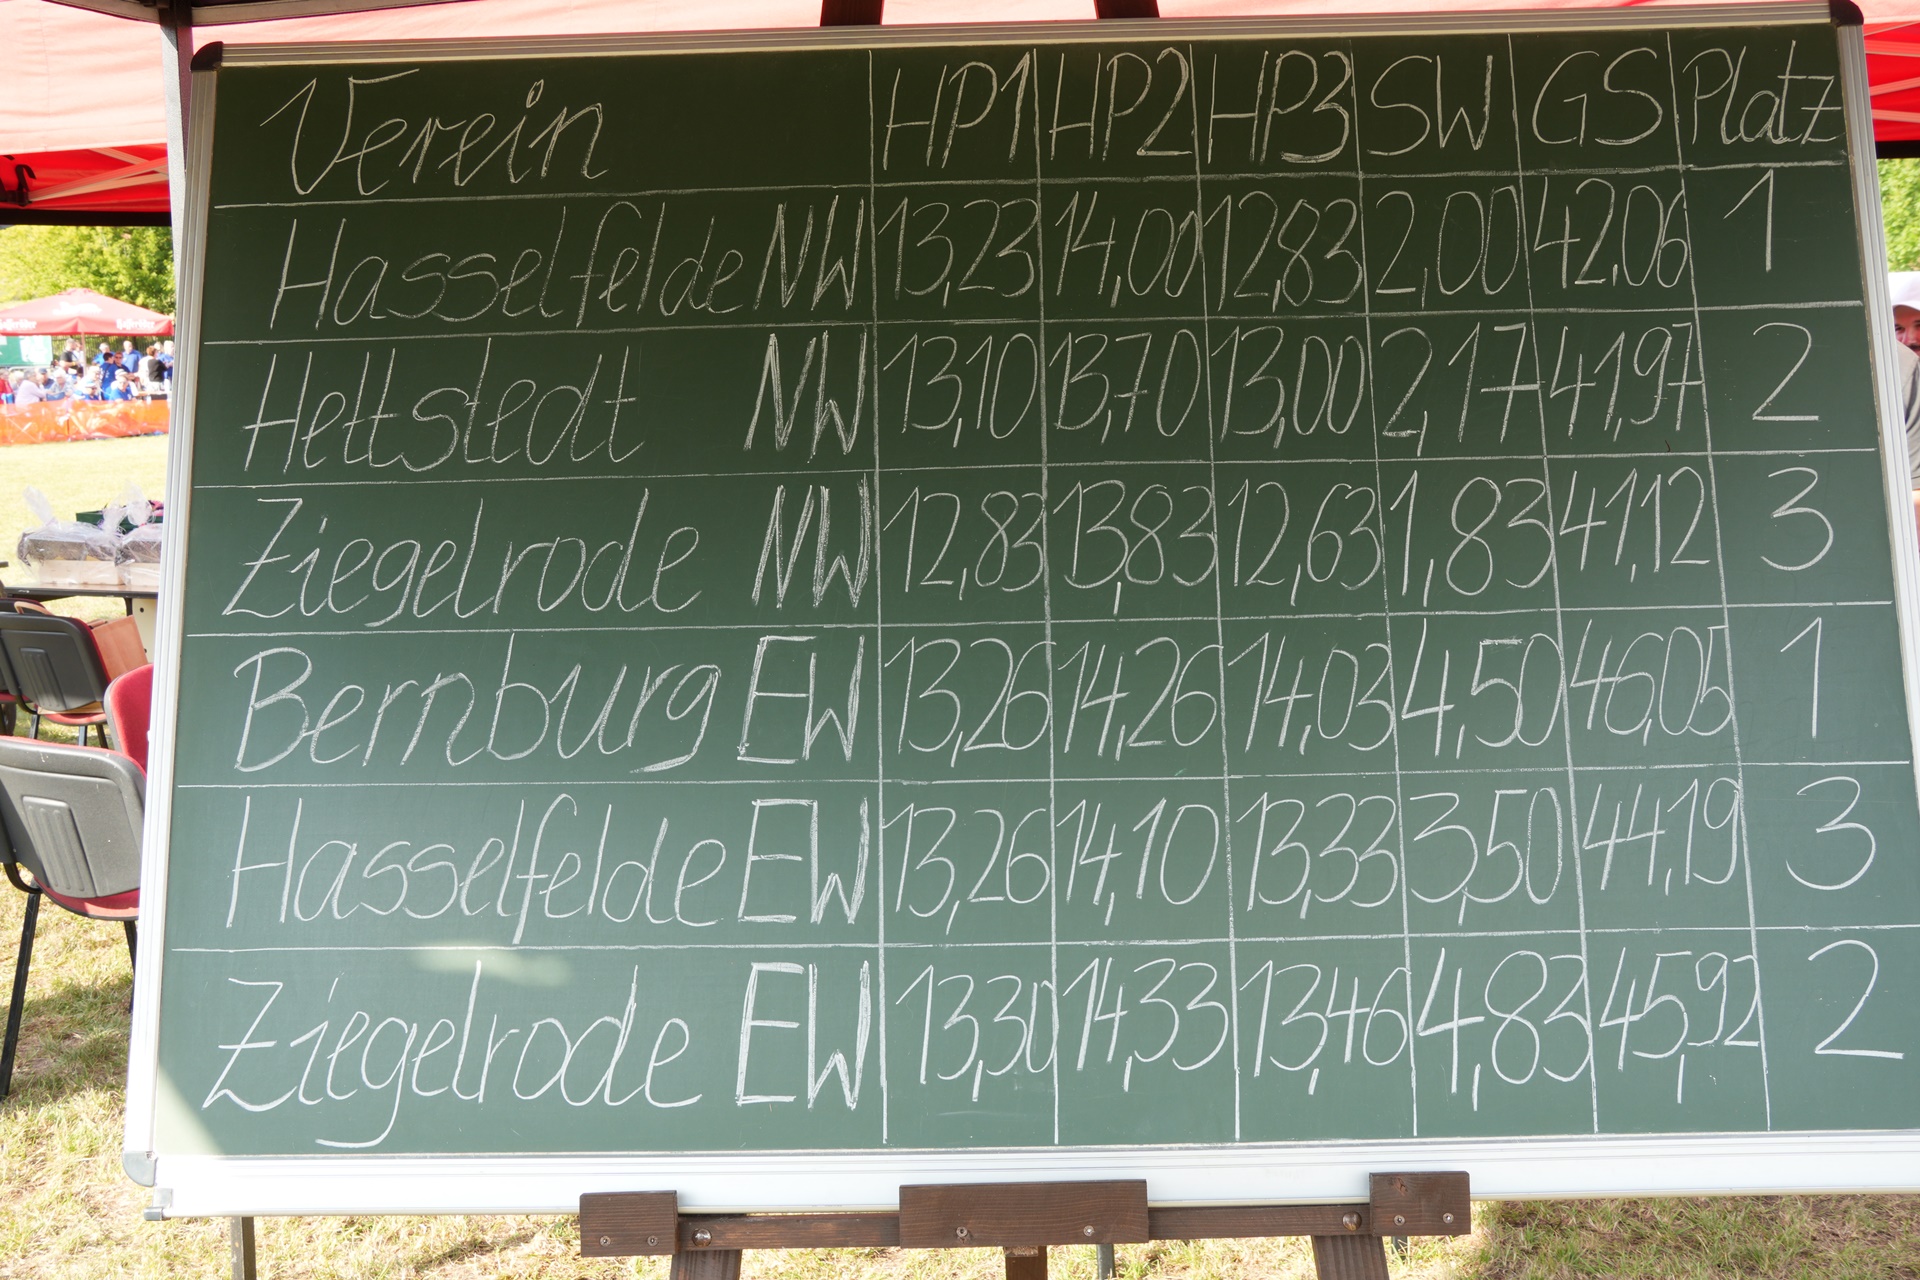 Verein HP1 HP2 HP3 SW GS Platz
Hasselfelde NW 13,23 14,00 12,83 2,00 42,06 1
Hettstedt NW 13,10 13,70 13,00 2,17 41,97 2
Ziegelrode NW 12,83 13,83 12,63 1,83 41,12 3
Bernburg EW 13,26 14,26 14,03 4,50 46,05 1
Hasselfelde EW 13,26 14,10 13,33 3,50 44,19 3
Ziegelrode EW 13,30 14,33 13,46 4,83 45,92 2